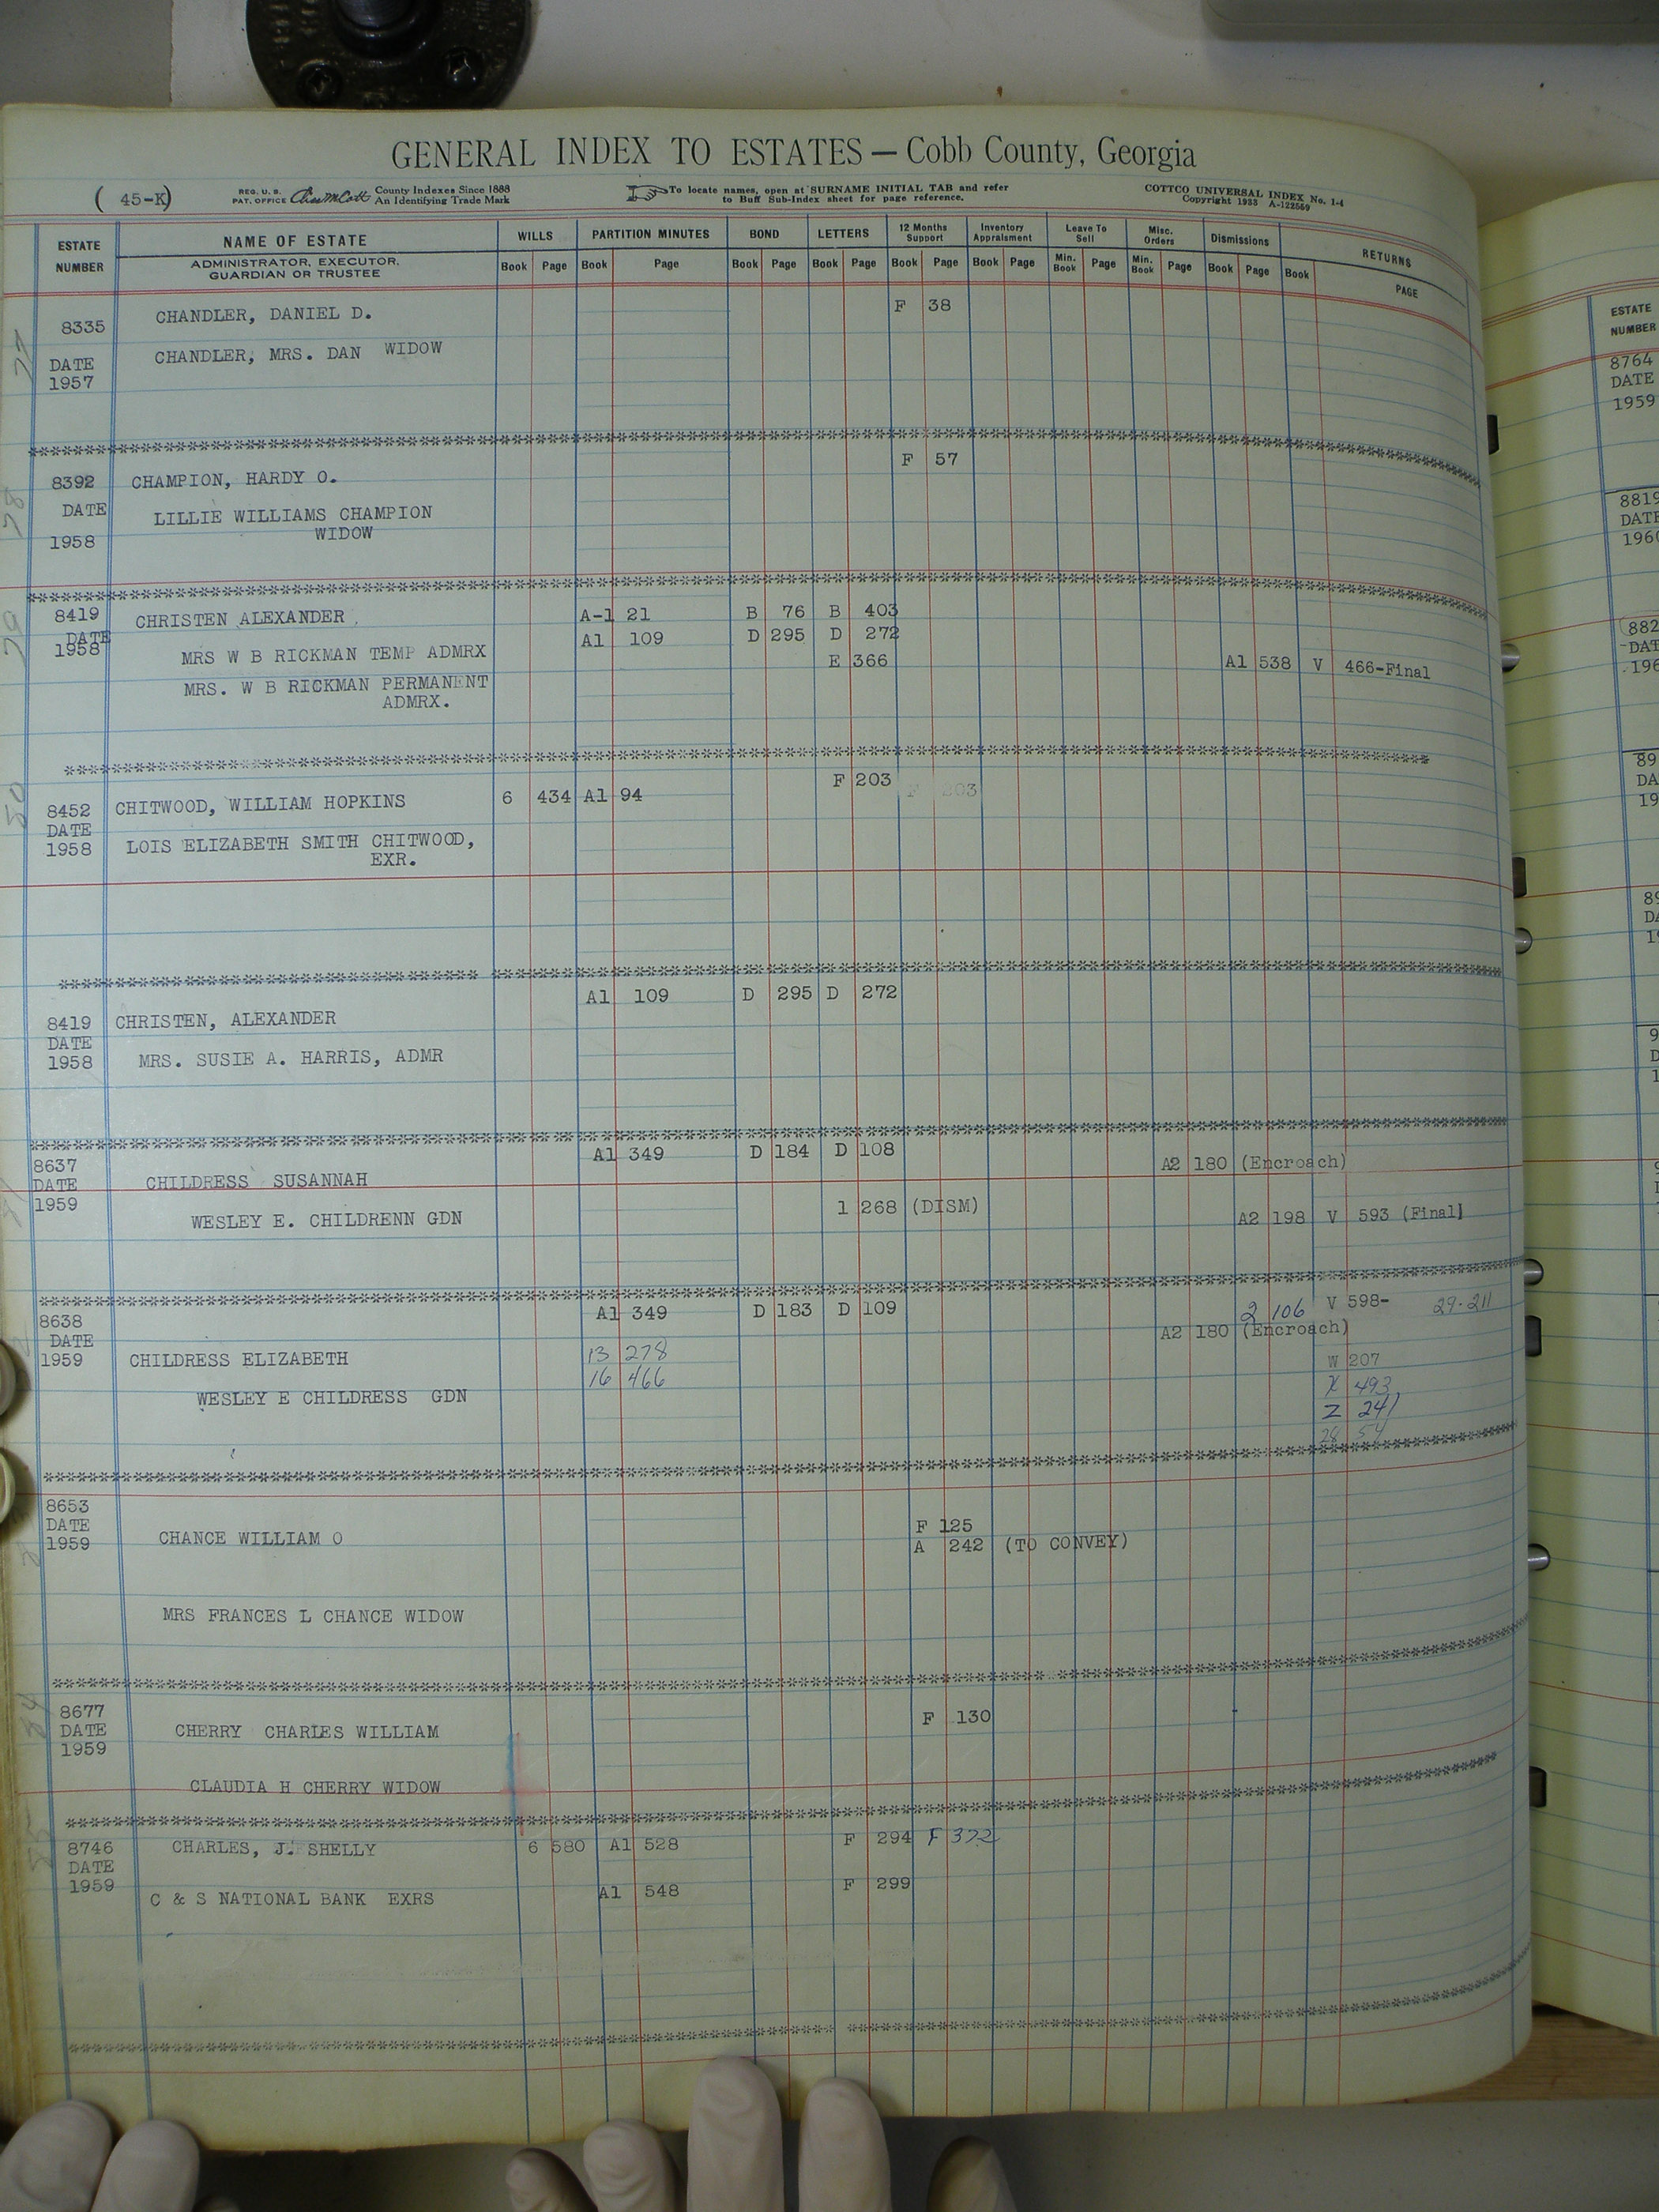 GENERAL INDEX TO ESTATES — Cobb County, Georgia
( 45-K)
REG. U. S. PAT. OFFICE County Indexes Since 1888 An Identifying Trade Mark
To locate names, open at SURNAME INITIAL TAB and refer to Buff Sub-Index sheet for page reference.
COTTCO UNIVERSAL INDEX No. 1-4
Copyright 1933 A-122559
ESTATE NUMBER NAME OF ESTATE WILLS PARTITION MINUTES BOND LETTERS 12 Months Support Inventory Appraisment Leave To Sell Misc. Orders Dismissions RETURNS
ADMINISTRATOR, EXECUTOR, GUARDIAN OR TRUSTEE Book Page Book Page Book Page Book Page Book Page Book Page Min. Book Page Min. Book Page Book Page Book PAGE
77
8335 CHANDLER, DANIEL D. F 38
DATE CHANDLER, MRS. DAN WIDOW
1957
********
78
8392 CHAMPION, HARDY O. F 57
DATE LILLIE WILLIAMS CHAMPION
1958 WIDOW
********
79
8419 CHRISTEN ALEXANDER A-1 21 B 76 B 403
DATE A1 109 D 295 D 272
1958 MRS W B RICKMAN TEMP ADMRX E 366 A1 538 V 466-Final
MRS. W B RICKMAN PERMANENT
ADMRX.
********
F 203 F 203
8452 CHITWOOD, WILLIAM HOPKINS 6 434 A1 94
DATE
1958 LOIS ELIZABETH SMITH CHITWOOD,
EXR.
********
A1 109 D 295 D 272
8419 CHRISTEN, ALEXANDER
DATE
1958 MRS. SUSIE A. HARRIS, ADMR
********
8637 A1 349 D 184 D 108 A2 180 (Encroach)
DATE CHILDRESS SUSANNAH
1959 1 268 (DISM) A2 198 V 593 (Final)
WESLEY E. CHILDRENN GDN
********
8638 A1 349 D 183 D 109 2 106 V 598- 29-211
DATE A2 180 (Encroach)
1959 CHILDRESS ELIZABETH 13 278 W 207
16 466 X 493
WESLEY E CHILDRESS GDN Z 241
28 54
********
8653
DATE F 125
1959 CHANCE WILLIAM O A 242 (TO CONVEY)
MRS FRANCES L CHANCE WIDOW
********
84
8677 F 130
DATE CHERRY CHARLES WILLIAM
1959
CLAUDIA H CHERRY WIDOW
********
8746 CHARLES, J. SHELLY 6 580 A1 528 F 294 F 372
DATE
1959 C & S NATIONAL BANK EXRS A1 548 F 299
********
ESTATE NUMBER
8764
DATE
1959
8819
DATE
1960
882
DAT
196
89
DA
19